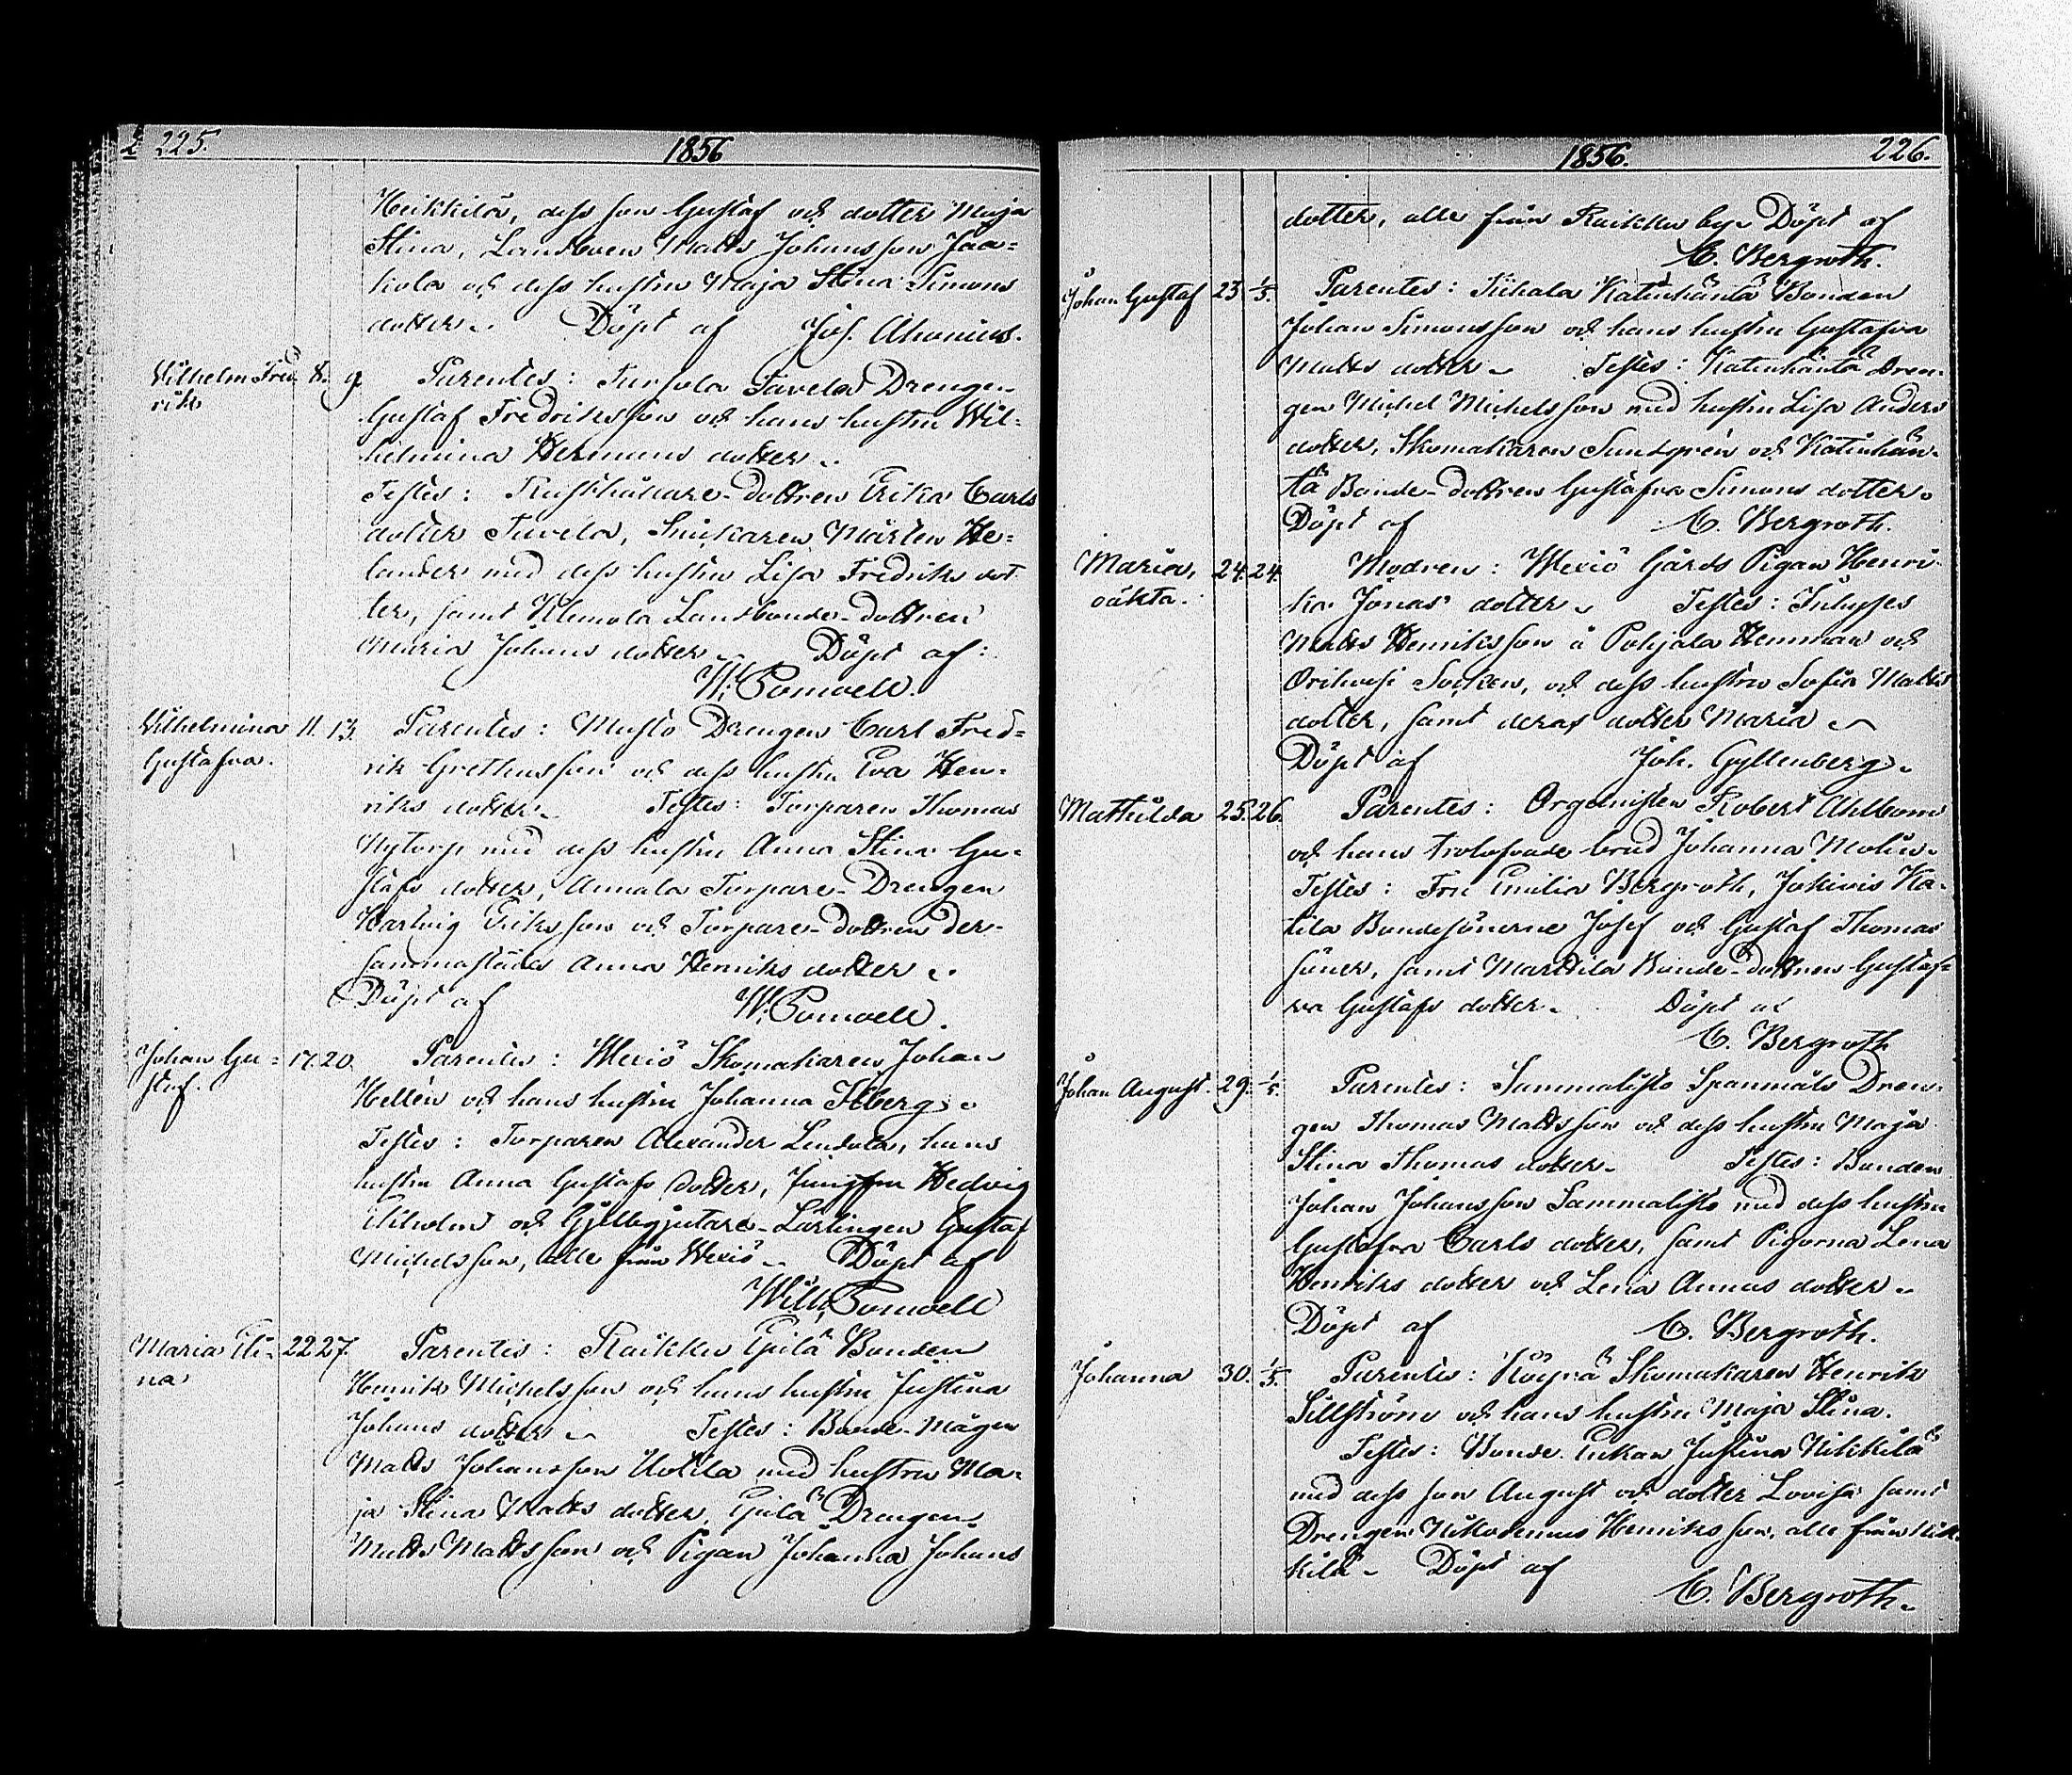 225.
1856
Heikkilä, dess son Gustaf och dotter Maja
Stina, Landboen Matts Johansson Jaa=
kola och dess hustru Maja Stina Simons
dotter. Döpt af Jos. Ahonius.
Vilhelm Fred 8. 9.
rik
Parentes: Turpola Tavela Drengen
Gustaf Fredriksson och hans hustru Wil=
helmina Hermans dotter.
Testes: Rusthållare-dottren Erika Carls
dotter Tavela, Snickaren Mårten He=
lander med dess hustru Lisa Fredriks dot
ter, samt Klemola Landbonde-dottren
Maria Johans dotter. Döpt af:
W. Pomoell.
Vilhelmina 11. 13.
Gustafva.
Parentes: Musto Drengen Carl Fred=
rik Grethusson och dess hustru Eva Hen=
riks dotter. Testes: Torparen Thomas
Nytorp med dess hustru Anna Stina Gu=
stafs dotter, Annala Torpare-Drengen
Hartvig Eriksson och Torpare-dottren der=
sammastädes Anna Henriks dotter.
Döpt af W. Pomoell.
Johan Gu= 17. 20.
staf.
Parentes: Wexiö Skomakaren Johan
Hellén och hans hustru Johanna
Testes: Torparen Alexander Lindula, hans
hustru Anna Gustafs dotter, Jungfru Hedvig
och Gjelbgjutare-Lärlingen Gustaf
Michelsson, alle från Wexiö. Döpt af
Wilh. Pomoell
Maria Sti= 22 27.
na
Parentes: Raikku Epilä Bonden
Henrik Michelsson och hans hustru Justina
Johans dotter. Testes: Bonde-Mågen
Matts Johansson Uotila med hustru Ma=
ja Stina Matts dotter, Epilä Drengen
Matts Mattsson och Pigan Johanna Johans
1856.
226.
dotter, alle från Raikku by. Döpt af
C. Bergroth.
Johan Gustaf 23 1/5.
Parentes: Tiihala Katinhäntä Bonden
Johan Simonsson och hans hustru Gustafva
Matts dotter. Testes: Katinhäntä Dren=
gen Michel Michelsson med hustru Lisa Anders
dotter, Skomakaren Sundgrén och Katinhän=
tä Bonde-dottren Gustafva Simons dotter.
Döpt af C. Bergroth.
Maria, 24. 24.
oäkta.
Modren: Wexiö Gårds Pigan Henri=
ka Jonas dotter. Testes: Inhyses
Matts Henriksson å Pohjala Hemman och
Orihvesi Socken, och dess hustru Sofia Matts
dotter, samt deras dotter Maria
Döpt af Joh. Gyllenberg.
Mathilda 25. 26.
Parentes: Organisten Robert Ahlbom
och hans trolofvade brud Johanna Molin.
Testes: Fru Emilia Bergroth, Jokivis Ka=
tila Bondesönerne Josef och Gustaf Thomas
söner, samt Marttila Bonde-dottren Gustaf=
va Gustafs dotter. Döpt af
C. Bergroth
Johan August. 29. 1/5.
Parentes: Sammalisto Spanmåls Dren=
gen Thomas Mattsson och dess hustru Maja
Stina Thomas dotter. Testes: Bonden
Johan Johansson Sammalisto med dess hustru
Gustafva Carls dotter, samt Pigorna Lena
Henriks dotter och Lena Annas dotter.
Döpt af C. Bergroth.
Johanna 30. 1/5.
Parentes: Köyrä Skomakaren Henrik
Sillström och hans hustru Maja Stina.
Testes: Bonde Enkan Justina Nikkilä
med dess son August och dotter Lovisa samt
Drengen Nikodemus Henriksson, alle från Nik=
kilä. Döpt af
C. Bergroth.